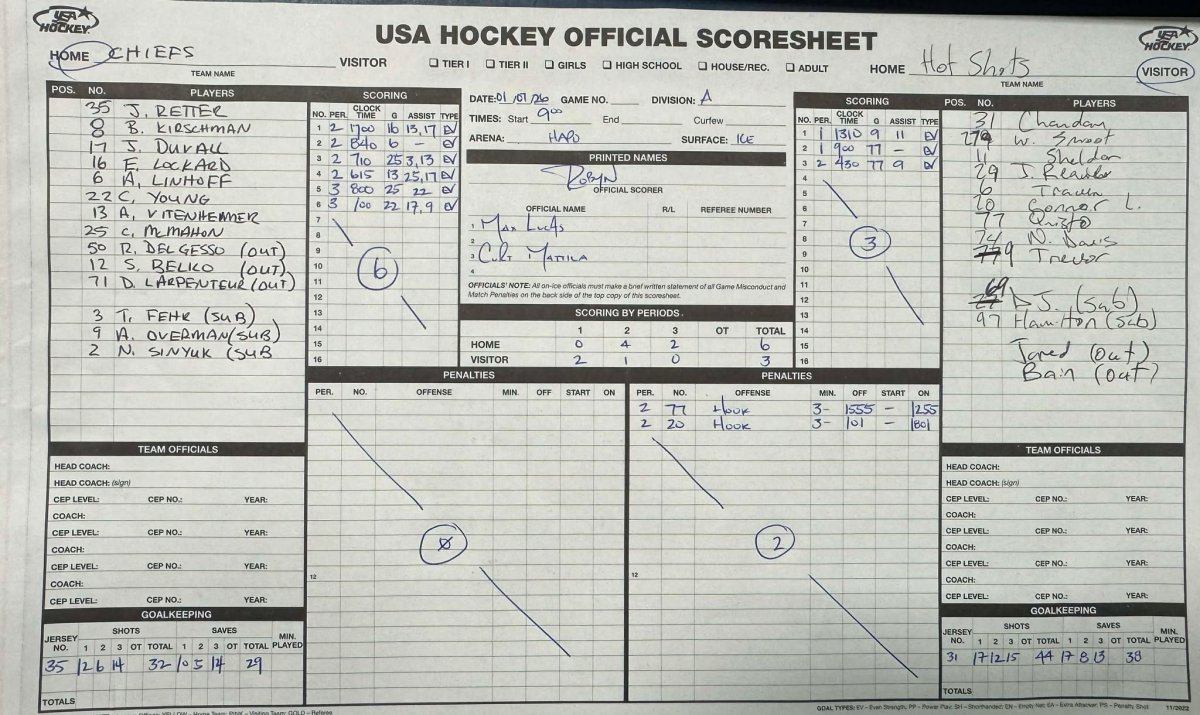 USA HOCKEY
USA HOCKEY OFFICIAL SCORESHEET
USA HOCKEY
HOME CHIEFS VISITOR
TEAM NAME
TIER I TIER II GIRLS HIGH SCHOOL HOUSE/REC. ADULT
HOME Hot Shots VISITOR
TEAM NAME
POS. NO. PLAYERS
35 J. RETTER
8 B. KIRSCHMAN
17 J. DUVALL
16 E. LOCKARD
6 A. LINHOFF
22 C. YOUNG
13 A. VITENHEIMER
25 C. McMAHON
50 R. DELGESSO (OUT)
12 S. BELKO (OUT)
71 D. LARPENTEUR (OUT)
3 T. FEHR (SUB)
9 A. OVERMAN (SUB)
2 N. SINYUK (SUB
SCORING
NO. PER. CLOCK TIME G ASSIST TYPE
1 2 1700 16 13,17 EV
2 2 840 6 - EV
3 2 710 25 3,13 EV
4 2 615 13 25,17 EV
5 3 800 25 22 EV
6 3 100 22 17,9 EV
7
8
9
10
11
12
13
14
15
16
6
DATE: 01/07/26 GAME NO. DIVISION: A
TIMES: Start 900 End Curfew
ARENA: HAPO SURFACE: ICE
PRINTED NAMES
ROBYN
OFFICIAL SCORER
OFFICIAL NAME R/L REFEREE NUMBER
1 MAX LUCAS
2
3 CURT MATTILA
4
OFFICIALS' NOTE: All on-ice officials must make a brief written statement of all Game Misconduct and
Match Penalties on the back side of the top copy of this scoresheet.
SCORING BY PERIODS
1 2 3 OT TOTAL
HOME 0 4 2 6
VISITOR 2 1 0 3
SCORING
NO. PER. CLOCK TIME G ASSIST TYPE
1 1 1310 9 11 EV
2 1 900 77 - EV
3 2 430 77 9 EV
4
5
6
7
8
9
10
11
12
13
14
15
16
3
POS. NO. PLAYERS
31
W. Smoot
11 Sheldon
29 J.
6
20 Connor L.
77
74 N. Davis
9 Trevor
69 DJ. (Sub)
97 Hamilton (Sub)
Jared (out)
Bain (out)
PENALTIES
PER. NO. OFFENSE MIN. OFF START ON
12
0
PENALTIES
PER. NO. OFFENSE MIN. OFF START ON
2 77 HOOK 3- 1555 - 1255
2 20 HOOK 3- 101 - 1801
12
2
TEAM OFFICIALS
HEAD COACH:
HEAD COACH: (sign)
CEP LEVEL: CEP NO.: YEAR:
COACH:
CEP LEVEL: CEP NO.: YEAR:
COACH:
CEP LEVEL: CEP NO.: YEAR:
COACH:
CEP LEVEL: CEP NO.: YEAR:
GOALKEEPING
JERSEY NO. SHOTS SAVES MIN. PLAYED
1 2 3 OT TOTAL 1 2 3 OT TOTAL
35 12 6 14 32 10 5 14 29
TOTALS
TEAM OFFICIALS
HEAD COACH:
HEAD COACH: (sign)
CEP LEVEL: CEP NO.: YEAR:
COACH:
CEP LEVEL: CEP NO.: YEAR:
COACH:
CEP LEVEL: CEP NO.: YEAR:
COACH:
CEP LEVEL: CEP NO.: YEAR:
GOALKEEPING
JERSEY NO. SHOTS SAVES MIN. PLAYED
1 2 3 OT TOTAL 1 2 3 OT TOTAL
31 17 12 15 44 17 8 13 38
TOTALS
GOAL TYPES: EV - Even Strength; PP - Power Play; SH - Shorthanded; EN - Empty Net; EA - Extra Attacker; PS - Penalty Shot 11/2022